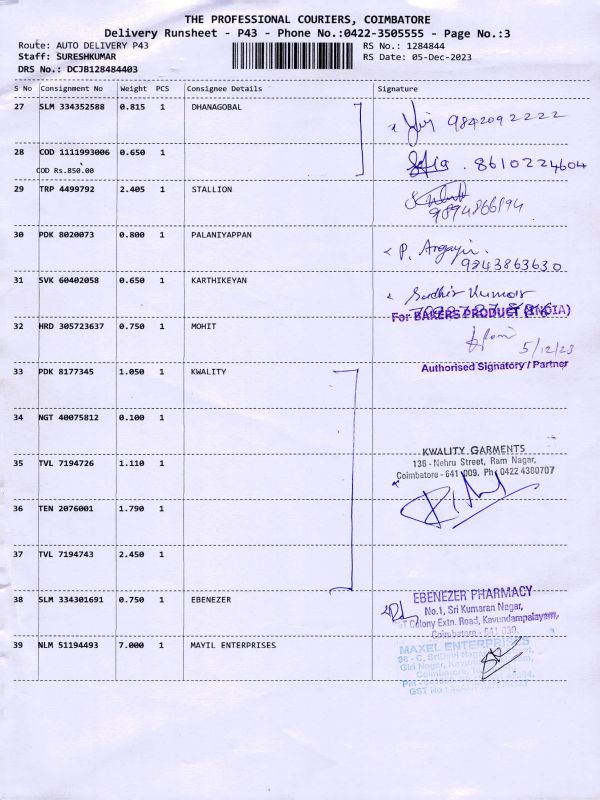 THE PROFESSIONAL COURIERS, COIMBATORE
Delivery Runsheet - P43 - Phone No.:0422-3505555 - Page No.:3
Route: AUTO DELIVERY P43 RS No.: 1284844
Staff: SURESHKUMAR RS Date: 05-Dec-2023
DRS No.: DCJB128484403
S No Consignment No Weight PCS Consignee Details Signature
27 SLM 334352588 0.815 1 DHANAGOBAL
9842092222
28 COD 1111993006 0.650 1
8610224604
COD Rs.850.00
29 TRP 4499792 2.405 1 STALLION
9894866194
30 PDK 8020073 0.800 1 PALANIYAPPAN
P.
9243863630
31 SVK 60402058 0.650 1 KARTHIKEYAN
Sudhir Kumar
For BAKERS PRODUCT (INDIA)
32 HRD 305723637 0.750 1 MOHIT
5/12/23
Authorised Signatory / Partner
33 PDK 8177345 1.050 1 KWALITY
34 NGT 40075812 0.100 1
KWALITY GARMENTS
136 - Nehru Street, Ram Nagar,
35 TVL 7194726 1.110 1
Coimbatore - 641 009. Ph: 0422 4380707
36 TEN 2076001 1.790 1
37 TVL 7194743 2.450 1
38 SLM 334301691 0.750 1 EBENEZER
EBENEZER PHARMACY
No.1, Sri Kumaran Nagar,
Colony Extn. Road, Kavundampalayam,
Coimbatore - 641 030.
39 NLM 51194493 7.000 1 MAYIL ENTERPRISES
MAXEL ENTERPRISES
GST No :